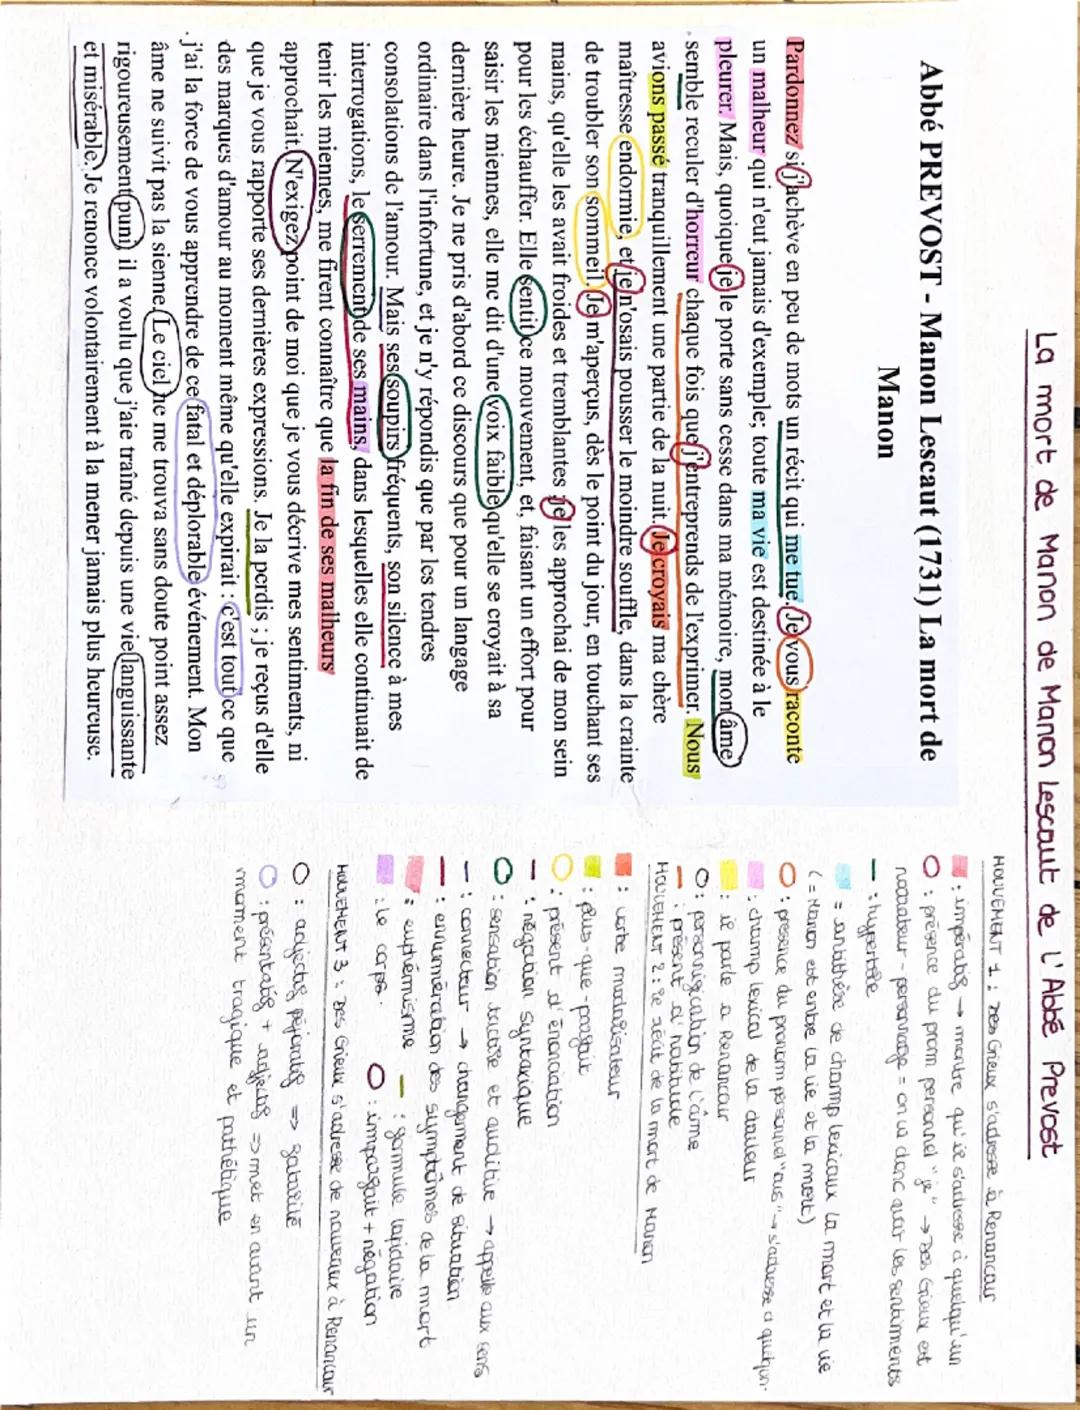 La mort de Manon de Manon Lescaut de l'Abbé Prevost
Abbé PREVOST - Manon Lescaut (1731) La mort de
Manon
Pardonnez si j'achève en peu de mots un récit qui me tue. Je vous raconte
un malheur qui n'eut jamais d'exemple; toute ma vie est destinée à le
pleurer. Mais, quoique je le porte sans cesse dans ma mémoire, mon âme
semble reculer d'horreur chaque fois que j'entreprends de l'exprimer. Nous
avions passé tranquillement une partie de la nuit. Je croyais ma chère
maîtresse endormie, et je n'osais pousser le moindre souffle, dans la crainte
de troubler son sommeil. Je m'aperçus, dès le point du jour, en touchant ses
mains, qu'elle les avait froides et tremblantes je les approchai de mon sein
pour les échauffer. Elle sentit ce mouvement, et, faisant un effort pour
saisir les miennes, elle me dit d'une voix faible, qu'elle se croyait à sa
dernière heure. Je ne pris d'abord ce discours que pour un langage
ordinaire dans l'infortune, et je n'y répondis que par les tendres
consolations de l'amour. Mais ses soupirs fréquents, son silence à mes
interrogations, le serrement de ses mains, dans lesquelles elle continuait de
tenir les miennes, me firent connaître que la fin de ses malheurs
approchait. N'exigez point de moi que je vous décrive mes sentiments, ni
que je vous rapporte ses dernières expressions. Je la perdis ; je reçus d'elle
des marques d'amour au moment même qu'elle expirait : c'est tout ce que
j'ai la force de vous apprendre de ce fatal et déplorable événement. Mon
âme ne suivit pas la sienne. Le ciel ne me trouva sans doute point assez
rigoureusement puni, il a voulu que j'aie traîné depuis une vie languissante
et misérable. Je renonce volontairement à la mener jamais plus heureuse.
MOUVEMENT 1 : Des Grieux s'adresse à Renoncour
: impératif → montre qu'il s'adresse à quelqu'un
: présence du pronom personnel "je" → Des Grieux est
narrateur - personnage = on va donc avoir les sentiments
: hyperbole
= antithèse de champ lexicaux la mort et la vie
(= Manon est entre la vie et la mort)
: présence du pronom personnel "vous" → s'adresse à quelqu'un.
: champ lexical de la douleur
: il parle à Renoncour
: personnification de l'âme
: présent d'habitude
MOUVEMENT 2 : le récit de la mort de Manon
: verbe modalisateur
: plus-que-parfait
: présent d'énonciation
: négation syntaxique
: sensation tactile et auditive → appelle aux sens
: connecteur → changement de situation
: énumération des symptômes de la mort
: euphémisme
: formule lapidaire
: le corps.
: imparfait + négation
MOUVEMENT 3 : Des Grieux s'adresse de nouveaux à Renoncour
: adjectif péjoratif => fatalité
: présentatif + adjectif => met en avant un
moment tragique et pathétique